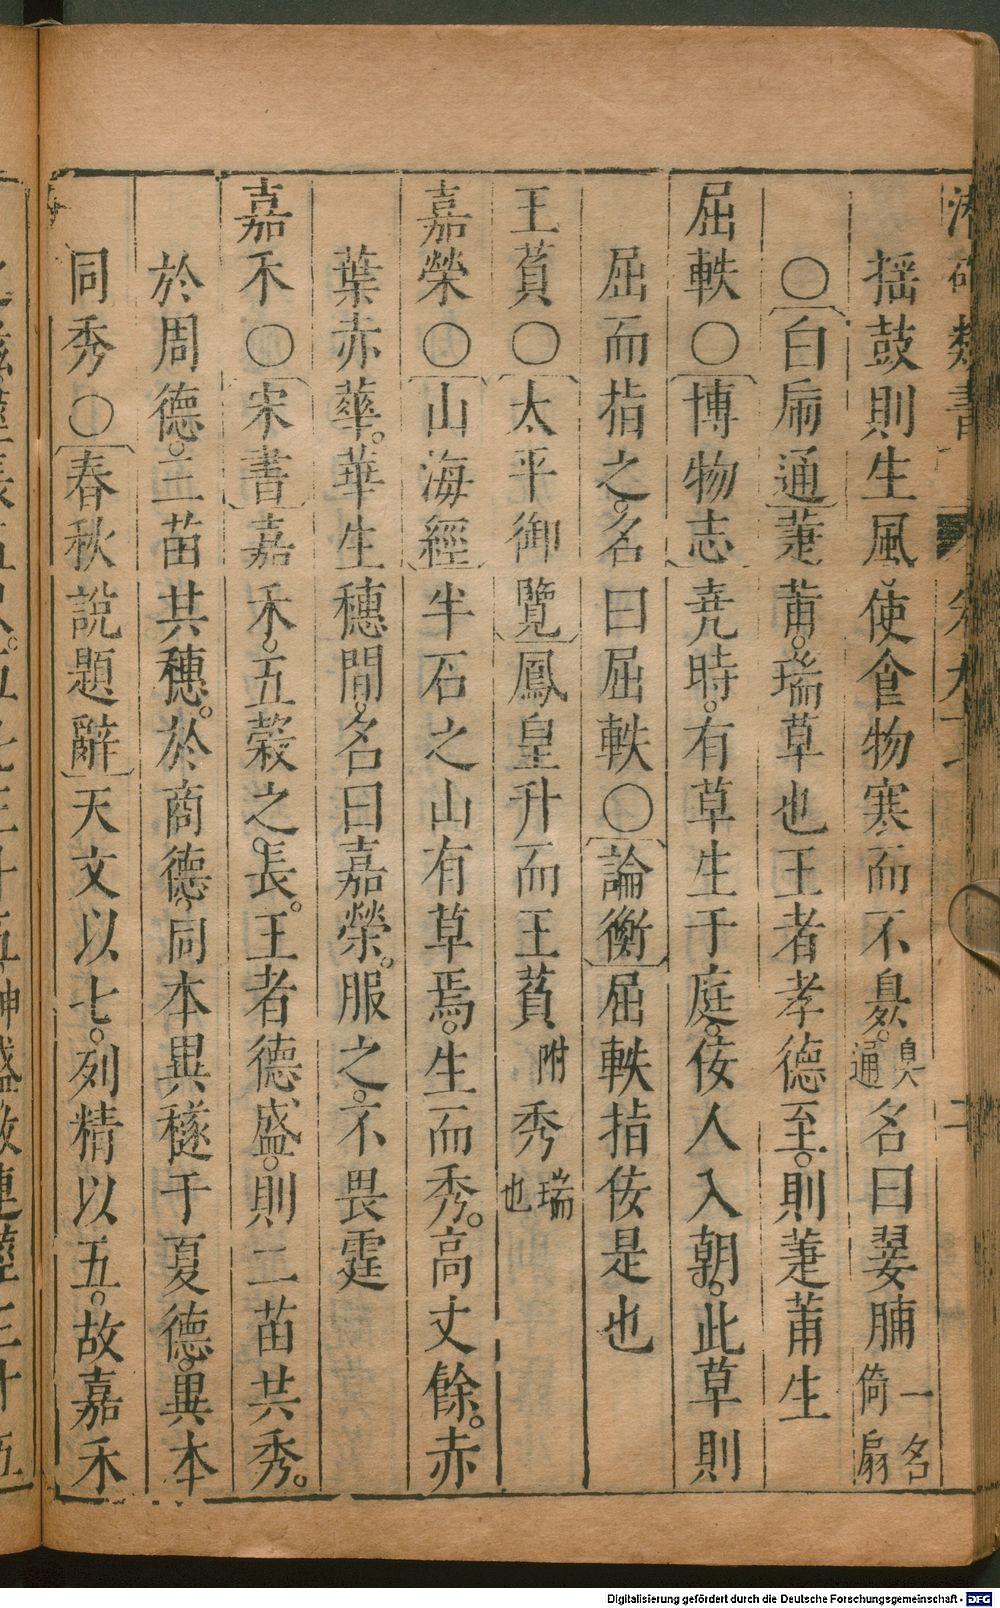 潛確類書 卷九十 二
揺鼓則生風使食物寒而不臭臭通名曰翣脯一名倚扇
〇白虎通萐莆瑞草也王者孝德至則萐莆生
屈軼〇博物志尭時有草生于庭佞人入朝此草則
屈而指之名曰屈軼〇論衡屈軼指佞是也
王萯〇太平御覽鳳皇升而王萯附秀瑞也
嘉榮〇山海經半石之山有草焉生而秀高丈餘赤
葉赤華華生穗間名曰嘉榮服之不畏霆
嘉禾〇宋書嘉禾五榖之長王者德盛則二苗共秀
於周德三苗共穗於商德同本異穟于夏德異本
同秀〇春秋說題辭天文以七列精以五故嘉禾
Digitalisierung gefördert durch die Deutsche Forschungsgemeinschaft - DFG